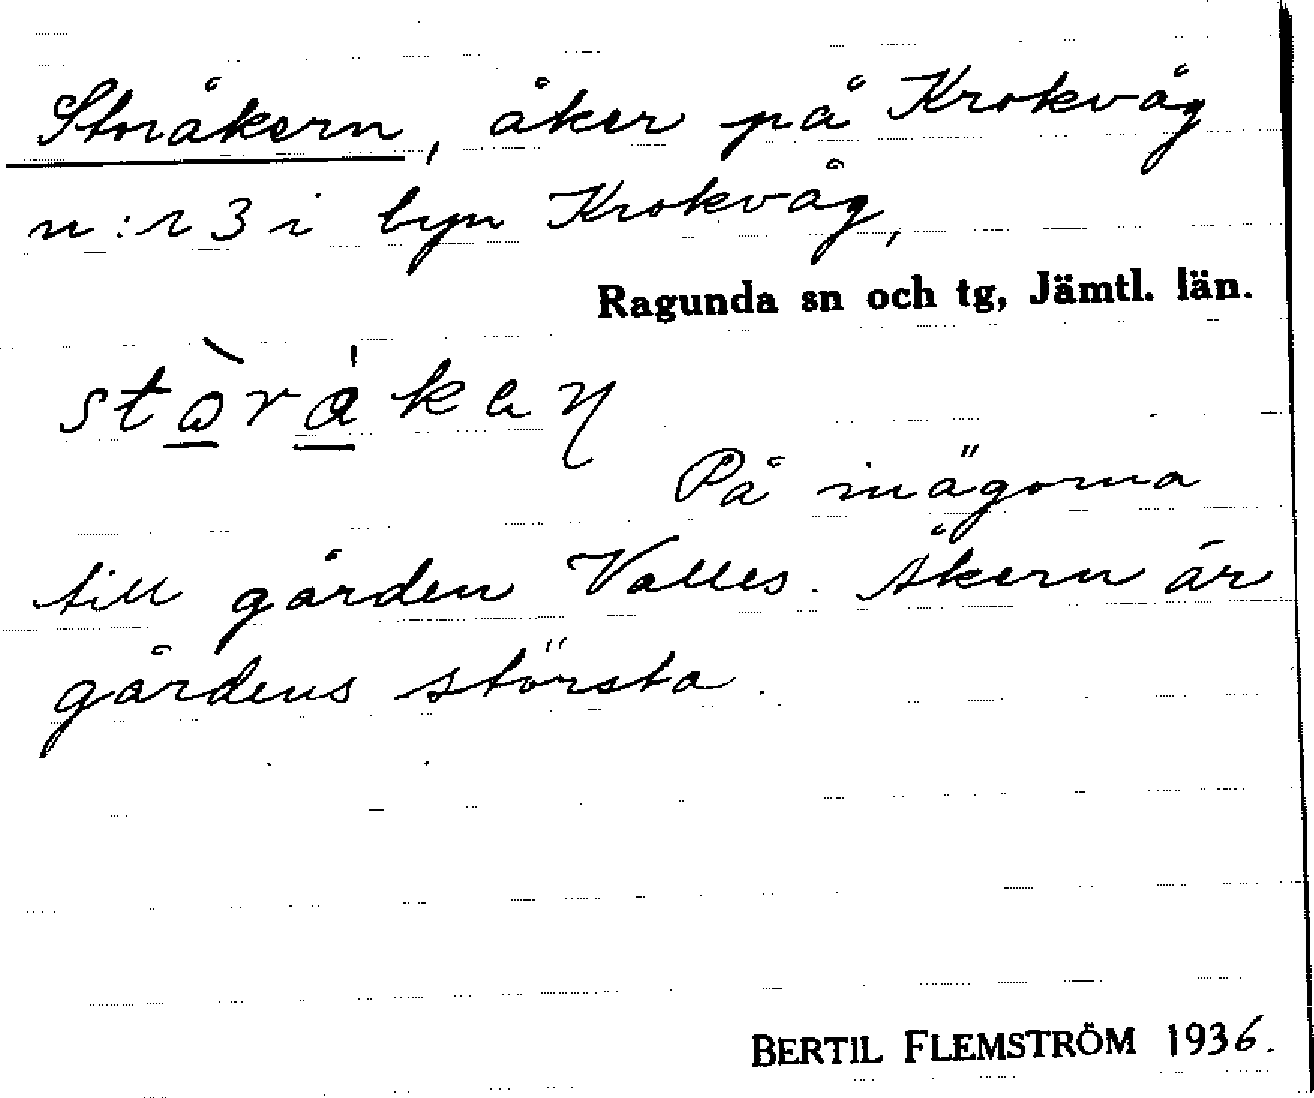 Storåkern, åker på Krokvåg
n:r 3 i byn Krokvåg,
Ragunda sn och tg, Jämtl. län.
På inägorna
till gården Valles. Åkern är
gårdens största.
BERTIL FLEMSTRÖM 1936.